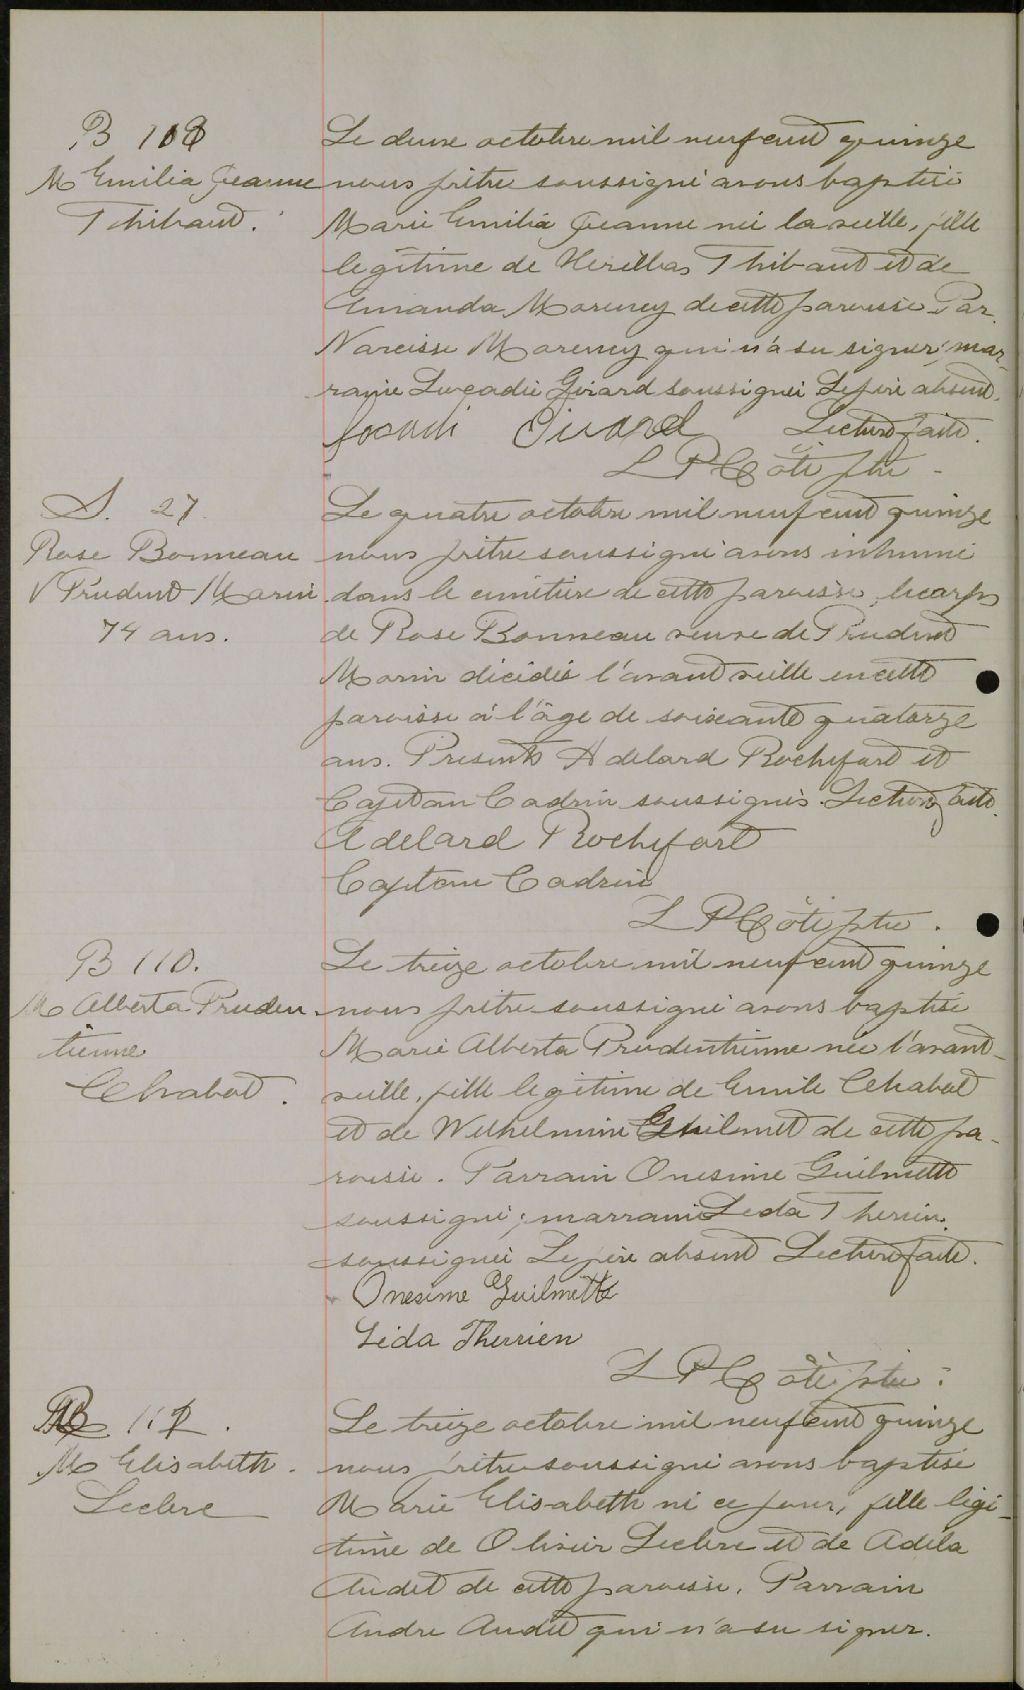 B 108
M Emilia Jeanne
Thibaut.
Le deux octobre mil neuf cent quinze
nous prêtre soussigné avons baptisé
Marie Emilia Jeanne née la veille, fille
légitime de Thibaut et de
Amanda Morency de cette paroisse Par.
Narcisse Morency qui n'a su signer; mar-
raine Girard soussignée Le père absent.
Lecture faite.
L P Côté ptre
S. 27
Rose Bonneau
V Prudent Morin
74 ans.
Le quatre octobre mil neuf cent quinze
nous prêtre soussigné avons inhumé
dans le cimitière de cette paroisse, le corps
de Rose Bonneau veuve de Prudent
Morin décédée l'avant veille en cette
paroisse à l'âge de soixante quatorze
ans. Présents Adelard Rochefort et
Cajetan Cadrin soussignés. Lecture faite.
Adelard Rochefort
Cajetan Cadrin
L P Côté ptre.
B 110.
M Alberta Pruden
tienne
Chabot.
Le treize octobre mil neuf cent quinze
nous prêtre soussigné avons baptisé
Marie Alberta Prudentienne née l'avant-
veille, fille légitime de Emile Chabot
et de Wilhelmine Guilmet de cette pa-
roisse. Parrain Onesime Guilmette
soussigné; marraine Leda Therien
soussignée Le père absent Lecture faite.
Onesime Guilmette
Léda Therrien
L P Côté ptre.
B 111.
M Elisabeth.
Leclerc
Le treize octobre mil neuf cent quinze
nous prêtre soussigné avons baptisé
Marie Elisabeth né ce jour, fille légi-
time de Olivier Leclerc et de Adéla
Audet de cette paroisse. Parrain
Andre Audet qui n'a su signer.